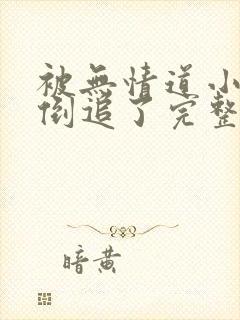 被無情道小
倒追了完整
暗黃